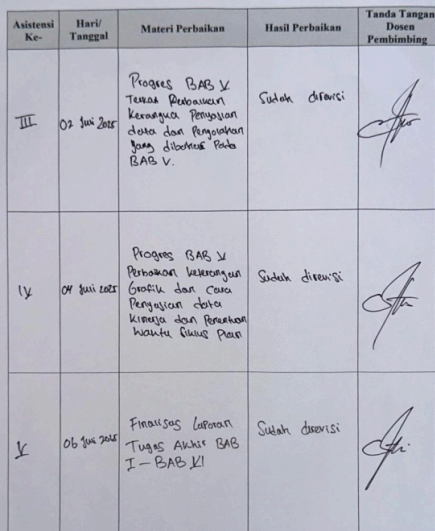 Asistensi Ke-
Hari/ Tanggal
Materi Perbaikan
Hasil Perbaikan
Tanda Tangan Dosen Pembimbing
III
02 Juni 2025
Progres BAB V
Terkait Perbaikan
Kerangka Penyajian
data dan Pengolahan
yang dibahas Pada
BAB V.
Sudah direvisi
IV
04 Juni 2025
Progres BAB V
Perbaikan keterangan
Grafik dan Cara
Penyajian data
Kinerja dan Penentuan
Waktu Siklus Plan
Sudah direvisi
V
06 Juni 2025
Finalisas Laporan
Tugas Akhir BAB
I - BAB VI
Sudah direvisi